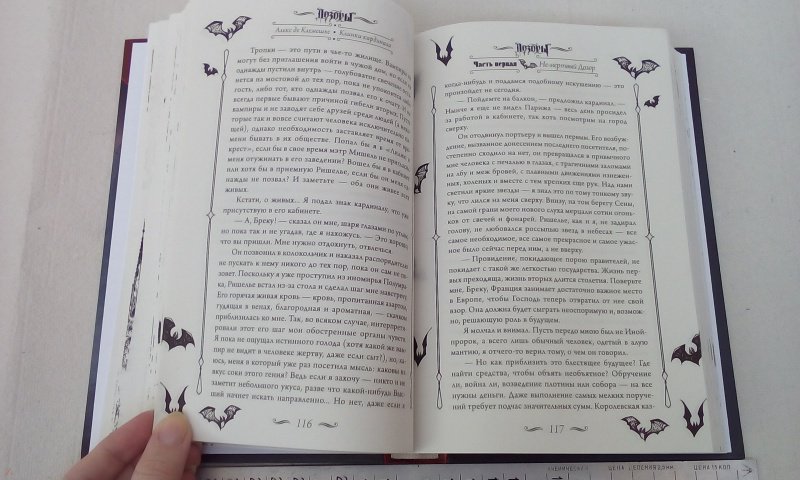 Дозоры
Алекс де Клемешье • Клинки кардинала
Тропки — это пути в чье-то жилище. Вампиры не
могут без приглашения войти в чужой дом, но если их
однажды пустили внутрь — голубоватое свечение остает-
ся на мостовой до тех пор, пока не упокоится либо
гость, либо тот, кто однажды позвал его к очагу.
всегда первые бывают причиной гибели вторых. По
вампиры и не заводят себе друзей среди людей (а неко-
торые так и вовсе считают человека исключительно
щей), однако необходимость заставляет время от вре-
мени бывать в их обществе. Попал бы я в
крест», если бы в свое время мэтр Мишель не пригласил
меня отужинать в его заведении? Вошел бы в кабинет
или хотя бы в приемную Ришелье, если бы он меня од-
нажды не позвал? И заметьте — оба они живее всех
живых.
Кстати, о живых... Я подал знак кардиналу, что уже
присутствую в его кабинете.
— А, Бреку! — сказал он мне, шаря глазами по углам,
но пока так и не угадав, где я нахожусь. — Это хорошо,
что вы пришли. Мне нужно отдохнуть, отвлечься.
Он позвонил в колокольчик и наказал распорядителю
не пускать к нему никого до тех пор, пока он сам не по-
зовет. Поскольку я уже проступил из иномирья Полумра-
ка, Ришелье встал из-за стола и сделал шаг мне навстречу.
Его горячая живая кровь — кровь, пропитанная азартом,
гудящая в венах, благородная и ароматная, — скачком
приблизилась ко мне. Так, во всяком случае, интерпрети-
ровали этот его шаг мои обостренные органы чувств.
Я пока не ощущал истинного голода (хотя какой же вам-
пир не видит в человеке жертву, даже если сыт?), но, ка-
юсь, меня в который уже раз посетила мысль: каковы на
вкус соки этого гения? Ведь если я захочу — никто и не
заметит небольшого укуса, разве что какой-нибудь Выс-
ший начнет искать направленно... Но нет, даже если я
116
Дозоры
Часть первая
Не-мертвый Дозор
когда-нибудь и поддамся подобному искушению — это
произойдет не сегодня.
— Пойдемте на балкон, — предложил кардинал. —
Нынче я еще не видел Парижа — весь день просидел
за работой в кабинете, так хоть посмотрим на город
сверху.
Он отодвинул портьеру и вышел первым. Его возбуж-
дение, вызванное донесением последнего посетителя, по-
степенно сходило на нет, он превращался в привычного
мне человека с печалью в глазах, с трагичными заломами
на лбу и меж бровей, с плавными движениями изнежен-
ных, холеных и вместе с тем крепких еще рук. Над нами
светили яркие звезды — я знал это по тому тонкому зву-
ку, что лился на меня сверху. Внизу, на том берегу Сены,
на самой грани моего нового слуха мерцали сотни огонь-
ков от свечей и фонарей. Ришелье, как и я, не задирал
голову, не любовался россыпью звезд в небесах — все
самое необходимое, все самое прекрасное и самое ужас-
ное было сейчас перед ним, а не вверху.
— Провидение, покидающее порою правителей, не
покидает с такой же легкостью государства. Жизнь пер-
вых преходяща, жизнь вторых длится столетия. Поверьте
мне, Бреку, Франция занимает достаточно важное место
в Европе, чтобы Господь теперь отвратил от нее свой
взор. Она должна будет сыграть неоспоримую и, возмо-
жно, решающую роль в будущем.
Я молчал и внимал. Пусть передо мною был не Иной-
пророк, а всего лишь обычный человек, одетый в алую
мантию, я отчего-то верил тому, о чем он говорил.
— Но как приблизить это блестящее будущее? Где
найти средства, чтобы объять необъятное? Обручение
ли, война ли, возведение плотины или собора — на все
нужны деньги. Даже выполнение самых мелких поруче-
ний требует подчас значительных сумм. Королевская каз-
117
УЧЕНИЧЕСКИЙ
ЦЕНА
ЦЕНА 15 КОП.